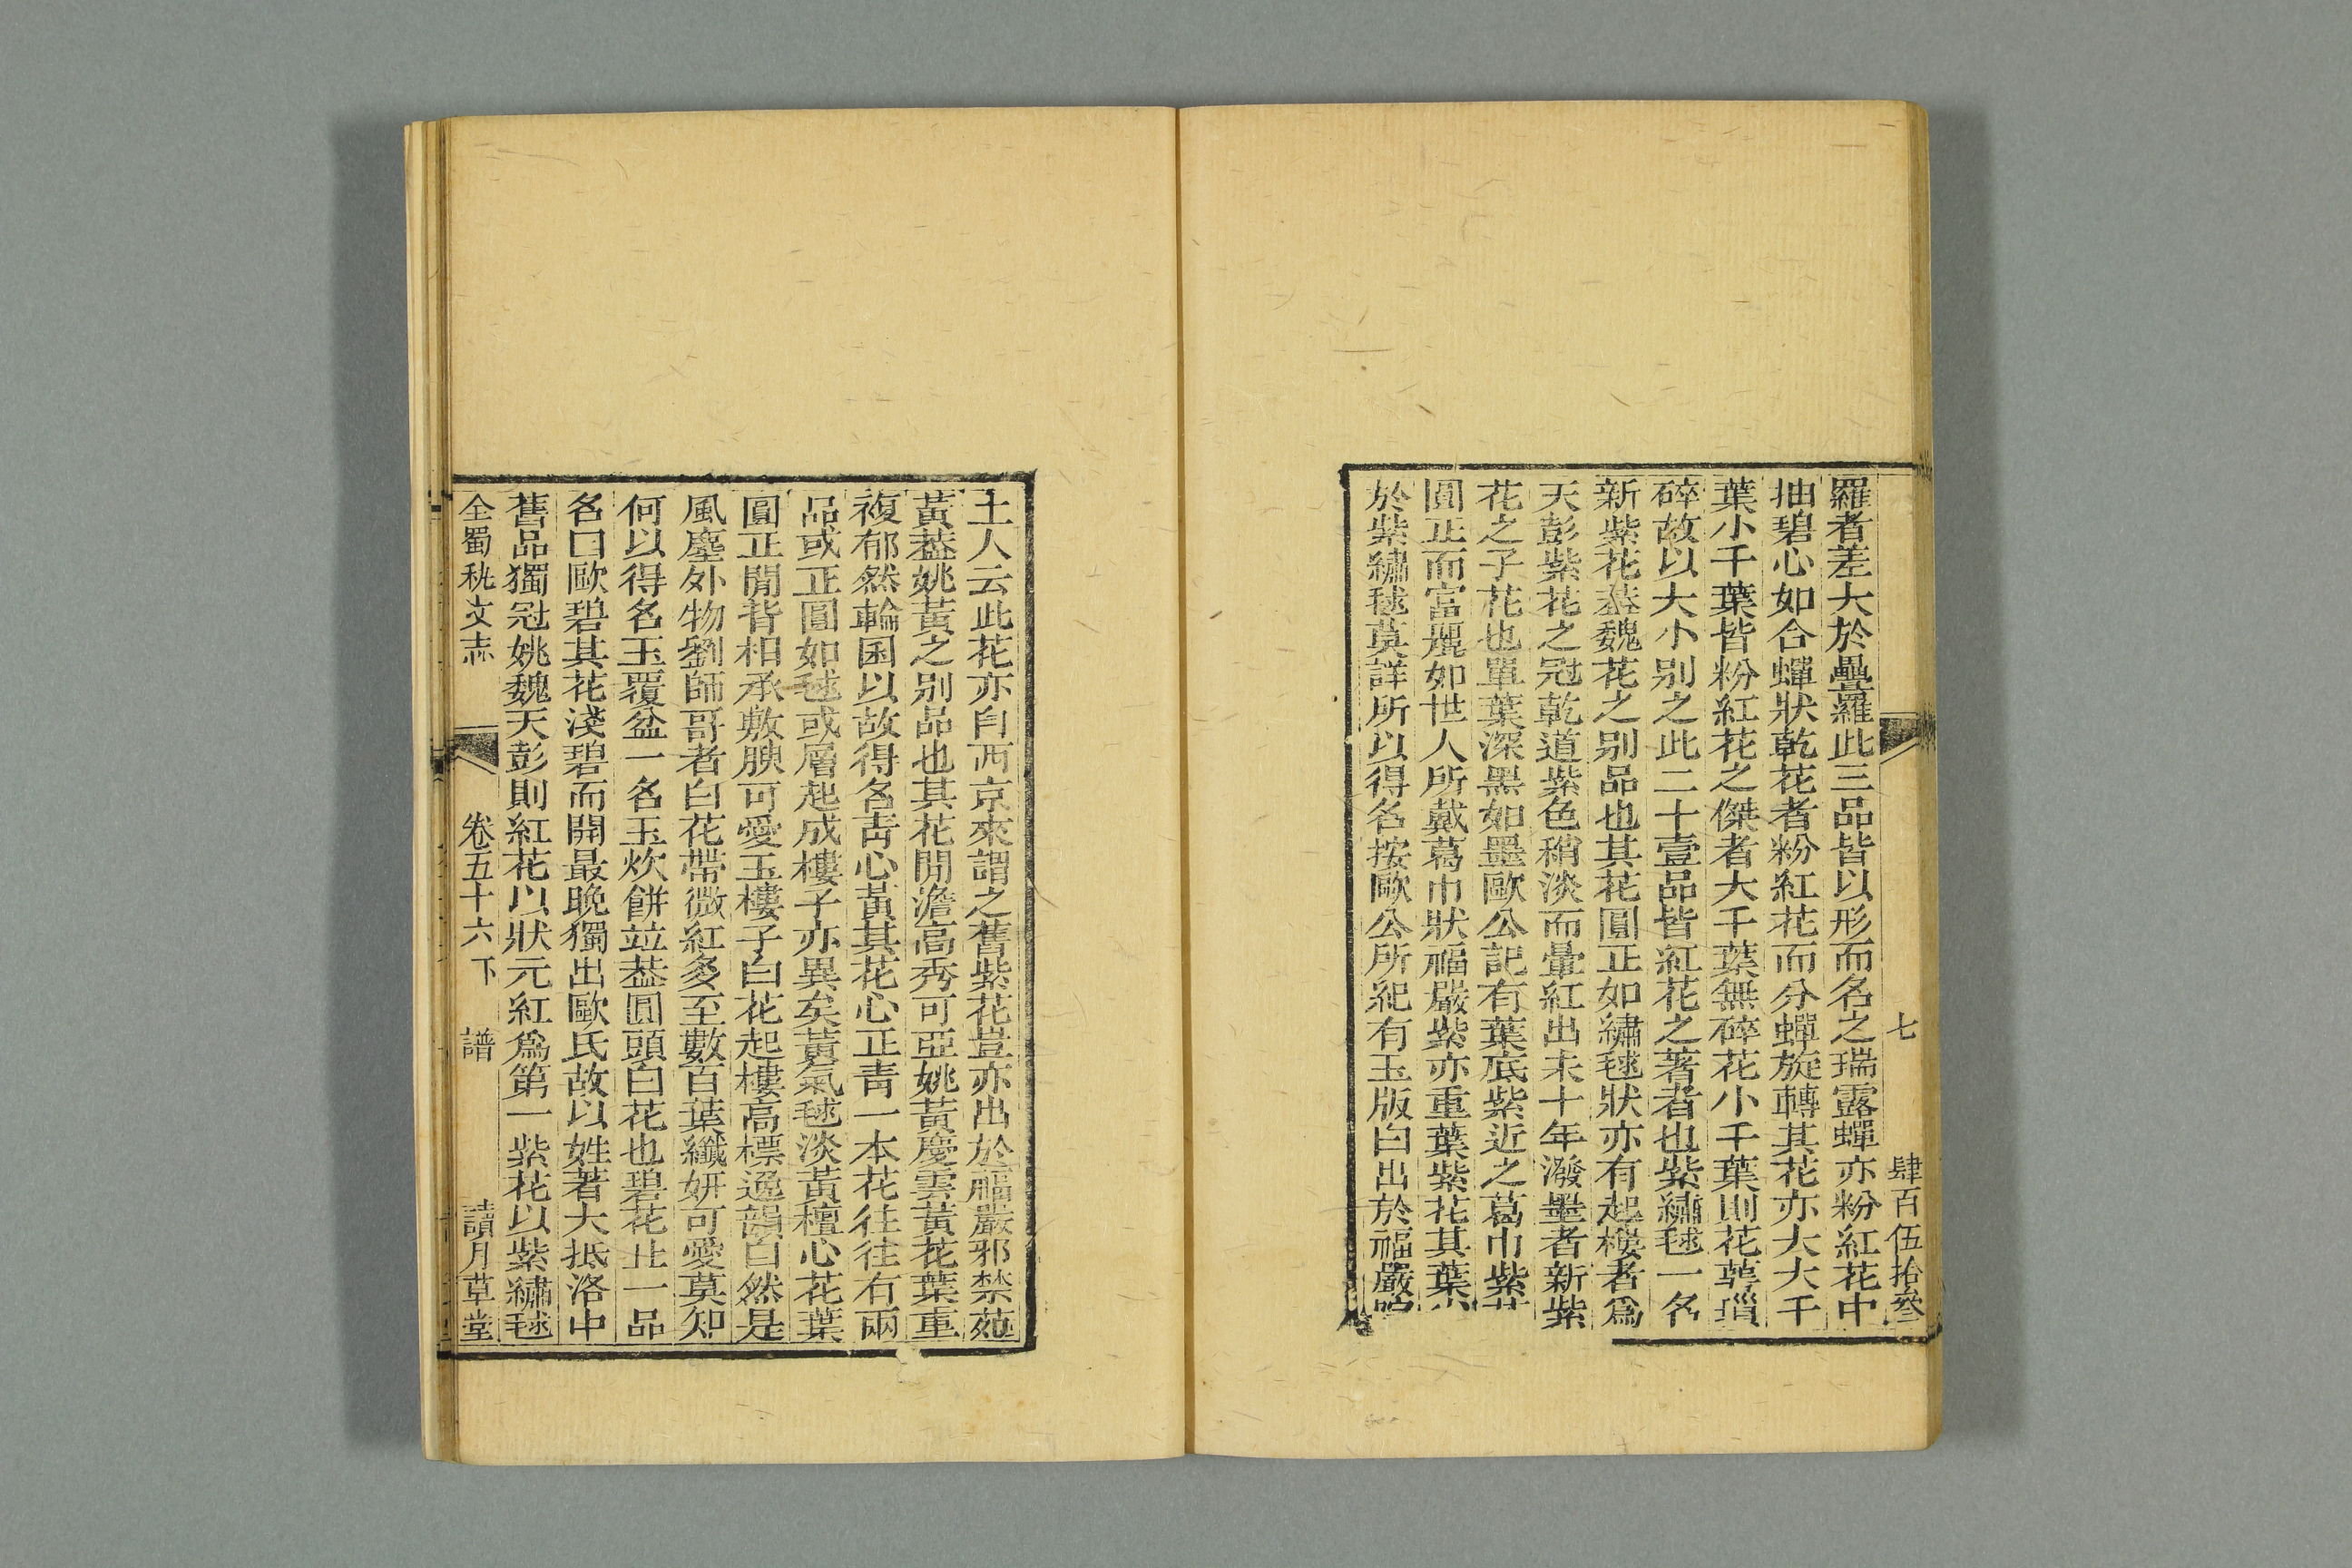 七 肆百伍拾叁
羅者差大於疊羅此三品皆以形而名之瑞露蟬亦粉紅花中
抽碧心如合蟬狀乾花者粉紅花而分蟬旋轉其花亦大大千
葉小千葉皆粉紅花之傑者大千葉無碎花小千葉則花萼瑣
碎故以大小别之此二十壹品皆紅花之著者也紫繡毬一名
新紫花葢魏花之别品也其花圓正如繡毬狀亦有起樓者爲
天彭紫花之冠乾道紫色稍淡而暈紅出未十年潑墨者新紫
花之子花也單葉深黑如墨歐公記有葉底紫近之葛巾紫花
圓正而富麗如世人所戴葛巾狀福嚴紫亦重葉紫花其葉少
於紫繡毬莫詳所以得名按歐公所紀有玉版白出於福嚴院
土人云此花亦自西京來謂之舊紫花豈亦出於福嚴邪禁苑
黃葢姚黃之别品也其花閒澹高秀可亞姚黃慶雲黃花葉重
複郁然輪囷以故得名青心黃其花心正青一本花往往有兩
品或正圓如毬或層起成樓子亦異矣黃氣毬淡黃檀心花葉
圓正閒背相承敷腴可愛玉樓子白花起樓高標逸韻自然是
風塵外物劉師哥者白花帶微紅多至數百葉纖妍可愛莫知
何以得名玉覆盆一名玉炊餅竝葢圓頭白花也碧花止一品
名曰歐碧其花淺碧而開最晚獨出歐氏故以姓著大抵洛中
舊品獨冠姚魏天彭則紅花以狀元紅爲第一紫花以紫繡毬
全蜀秇文志 卷五十六下 譜 讀月草堂